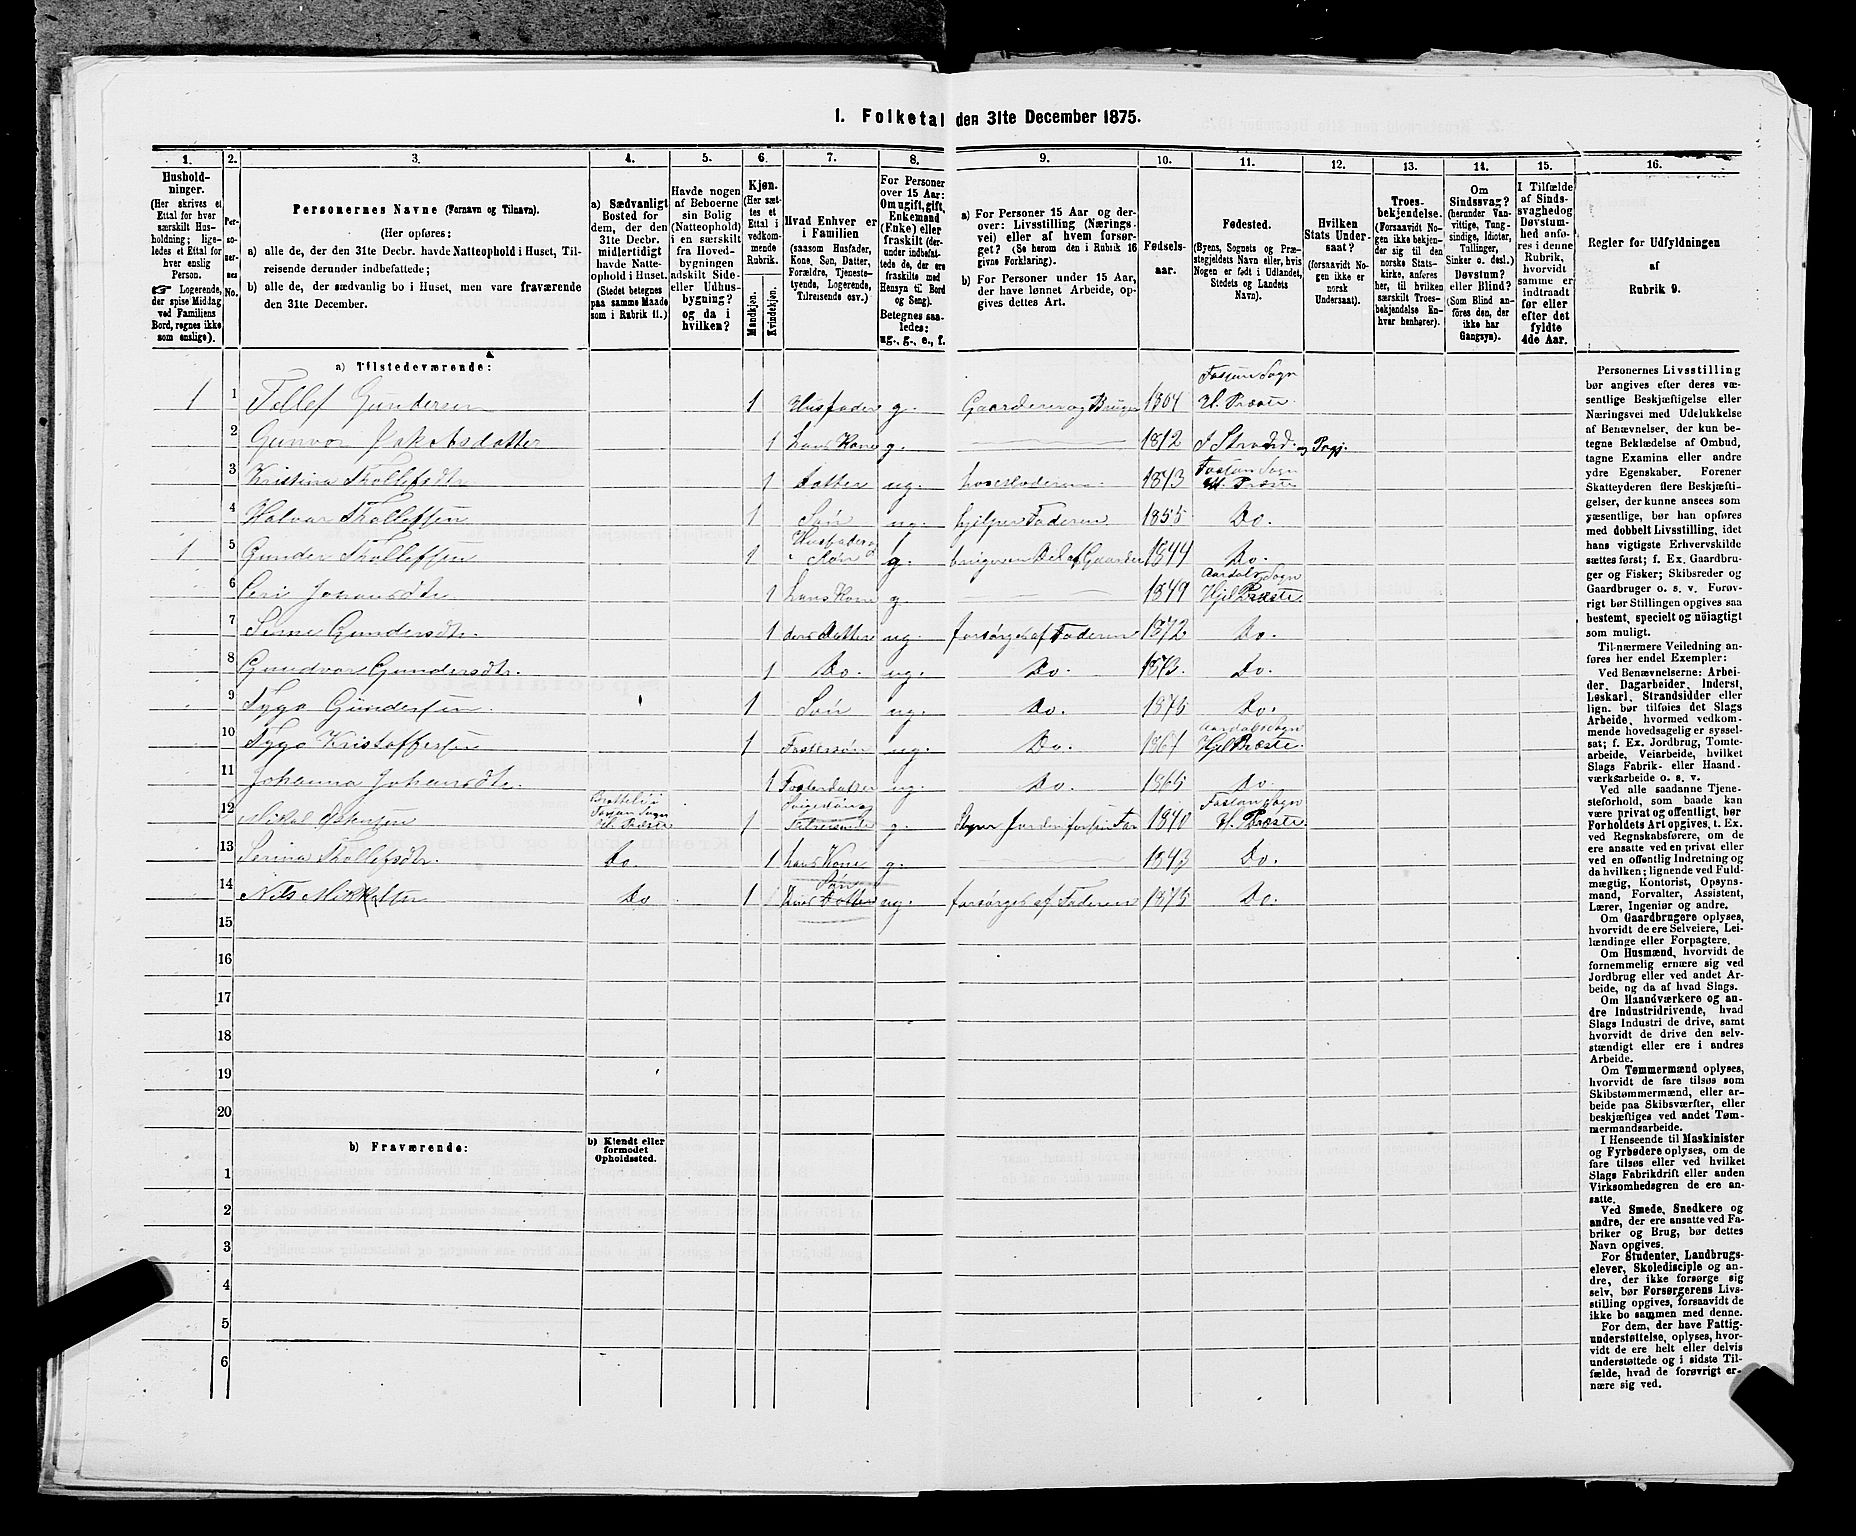 1. Folketal den 31te December 1875.
1. 2. 3. 4. 5. 6. 7. 8. 9. 10. 11. 12. 13. 14. 15. 16.
Hushold-
ninger.
(Her skrives et
Ettal for hver
særskilt Hus-
holdning; lige-
ledes et Ettal for
hver enslig
Person.
☞ Logerende,
der spise Middag
ved Familiens
Bord, regnes ikke
som enslige).
Per-
so-
ner-
nes
No.
Personernes Navne (Fornavn og Tilnavn).
(Her opføres:
a) alle de, der den 31te Decbr. havde Natteophold i Huset, Til-
reisende derunder indbefattede;
b) alle de, der sædvanlig bo i Huset, men vare fraværende
den 31te December.
a) Sædvanligt
Bosted for
dem, der den
31te Decbr.
midlertidigt
havde Natte-
ophold i Huset.
(Stedet betegnes
paa samme Maade
som i Rubrik 11.)
Havde nogen
af Beboerne
sin Bolig
(Natteophold)
i en særskilt
fra Hoved-
bygningen
adskilt Side-
eller Udhus-
bygning?
og da i
hvilken?
Kjøn.
(Her sæt-
tes et
Ettal i
vedkom-
mende
Rubrik.
Mandkjøn.
Kvindekjøn.
Hvad Enhver er
i Familien
(saasom Husfader,
Kone, Søn, Datter,
Forældre, Tjeneste-
tyende, Logerende,
Tilreisende osv.)
For Personer
over 15 Aar:
Om ugift, gift,
Enkemand
(Enke) eller
fraskilt (der-
under indbefat-
tede de, der ere
fraskilte med
Hensyn til Bord
og Seng).
Betegnes saa-
ledes:
ug., g., e., f.
a) For Personer 15 Aar og der-
over: Livsstilling (Nærings-
vei) eller af hvem forsør-
get? (Se herom den i Rubrik 16
givne Forklaring).
b) For Personer under 15 Aar,
der have lønnet Arbeide, op-
gives dettes Art.
Fødsels-
aar.
Fødested.
(Byens, Sognets og Præ-
stegjeldets Navn eller, hvis
Nogen er født i Udlandet,
Stedets og Landets
Navn).
Hvilken
Stats Under-
saat?
(forsaavidt No-
gen ikke er
norsk
Undersaat).
Troes-
bekjendelse.
(Forsaavidt No-
gen ikke bekjen-
der sig til den
norske Stats-
kirke, anføres
her, til hvilken
særskilt Troes-
bekjendelse En-
hver henhører).
Om
Sindssvag?
(herunder Van-
vittige, Tung-
sindige, Idioter,
Tullinger,
Sinker o. desl.)
Døvstum?
eller Blind?
(Som Blind an-
føres den, der
ikke har
Gangsyn).
I Tilfælde
af Sinds-
svaghed og
Døvstum-
hed anfø-
res i denne
Rubrik,
hvorvidt
samme er
indtraadt
før eller
efter det
fyldte
4de Aar.
Regler for Udfyldningen
af
Rubrik 9.
a) Tilstedeværende:
1 1 Tollef Gundersen 1 Husfader g. Gaardeier og Bruger 1804 Fossan Sogn H. Præste.
2 Gunvor Jakobsdatter 1 hans Kone g. 1812 I Strand S. og Prgj.
3 Kristina Thollefsdtr 1 Datter ug. 1843 Fossan Sogn H. Præste
4 Halvor Thollefsen 1 Søn ug. hjelper Faderen 1855 Do.
1 5 Gunder Thollefsen 1 Husfader og Søn g. bruger en Del af Gaarden 1844 Do.
6 Seri Johansdtr 1 hans Kone g. 1849 Aardals Sogn Hjel. Præste.
7 Serine Gundersdtr. 1 deres Datter ug. forsørges af Faderen 1872 Do.
8 Gundvor Gundersdtr. 1 Do. ug. Do. 1873. Do.
9 Tyge Gundersen 1 Søn ug. Do. 1875 Do.
10 Tyge Kristoffersen 1 Fostersøn ug. Do. 1867 Aardals Sogn Hjel Præste.
11 Johanna Johansdtr. 1 Fosterdatter ug. Do. 1865 Do
12 Mikal Brattelii Fossan Sogn H. Præste 1 Svigersøn og Tilreisende g. 1840 Fossan Sogn H. Præste
13 Serina Thollefsdtr. Do. 1 hans Kone g. 1843 Do.
14 Nils Mikkelsen Do 1 Søn deres Datter ug. forsørges af Faderen 1875 Do.
15
16
17
18
19
20
b) Fraværende:
b) Kjendt eller
formodet
Opholdssted.
1
2
3
4
5
6
Personernes Livsstilling
bør angives efter deres væ-
sentlige Beskjæftigelse eller
Næringsvei med Udelukkelse
af Benævnelser, der kun be-
tegne Beklædelse af Ombud,
tagne Examina eller andre
ydre Egenskaber. Forener
Skatteyderen flere Beskjæfti-
gelser, der kunne ansees som
væsentlige, bør han opføres
med dobbelt Livsstilling, idet
hans vigtigste Erhvervskilde
sættes først; f. Ex. Gaardbru-
ger og Fisker; Skibsreder og
Gaardbruger o. s. v. Forøv-
rigt bør Stillingen opgives saa
bestemt, specielt og nöiagtigt
som muligt.
Til nærmere Veiledning an-
føres her endel Exempler:
Ved Benævnelserne: Arbei-
der, Dagarbeider, Inderst,
Løskarl, Strandsidder eller
lign. bør tilføies det Slags
Arbeide, hvormed vedkom-
mende hovedsagelig er syssel-
sat; f. Ex. Jordbrug, Tomte-
arbeide, Veiarbeide, hvilket
Slags Fabrik- eller Haand-
værksarbeide o. s. v.
Ved alle saadanne Tjene-
steforhold, som baade kan
være privat og offentligt, bør
Forholdets Art opgives, t. Ex.
ved Regnskabsførere, om de
ere ansatte ved en privat eller
ved en offentlig Indretning og
da hvilken; lignende ved Fuld-
mægtig, Kontorist, Opsyns-
mand, Forvalter, Assistent,
Lærer, Ingeniør og andre.
Om Gaardbrugere oplyses,
hvorvidt de ere Selveiere, Lei-
lændinge eller Forpagtere.
Om Husmænd, hvorvidt de
fornemmelig ernære sig ved
Jordbrug eller ved andet Ar-
beide, og da af hvad Slags.
Om Haandværkere og an-
dre Industridrivende, hvad
Slags Industri de drive, samt
hvorvidt de drive den selv-
stændigt eller ere i andres
Arbeide.
Om Tømmermænd oplyses,
hvorvidt de fare tilsøs som
Skibstømmermænd, eller ar-
beide paa Skibsværfter, eller
beskjæftiges ved andet Tøm-
mermandsarbeide.
I Henseende til Maskinister
og Fyrbødere oplyses, om de
fare tilsøs eller ved hvilket
Slags Fabrikdrift eller anden
Virksomhedsgren de ere an-
satte.
Ved Smede, Snedkere og
andre, der ere ansatte ved Fa-
briker og Brug, bør dettes
Navn opgives.
For Studenter, Landbrugs-
elever, Skoledisciple og an-
dre, der ikke forsørge sig
selv, bør Forsørgerens Livs-
stilling opgives, forsaavidt de
ikke bo sammen med denne.
For dem, der have Fattig-
understøttelse, oplyses, hvor-
vidt de ere helt eller delvis
understøttede og i sidste Til-
fælde, hvad de forøvrigt er-
nære sig ved.